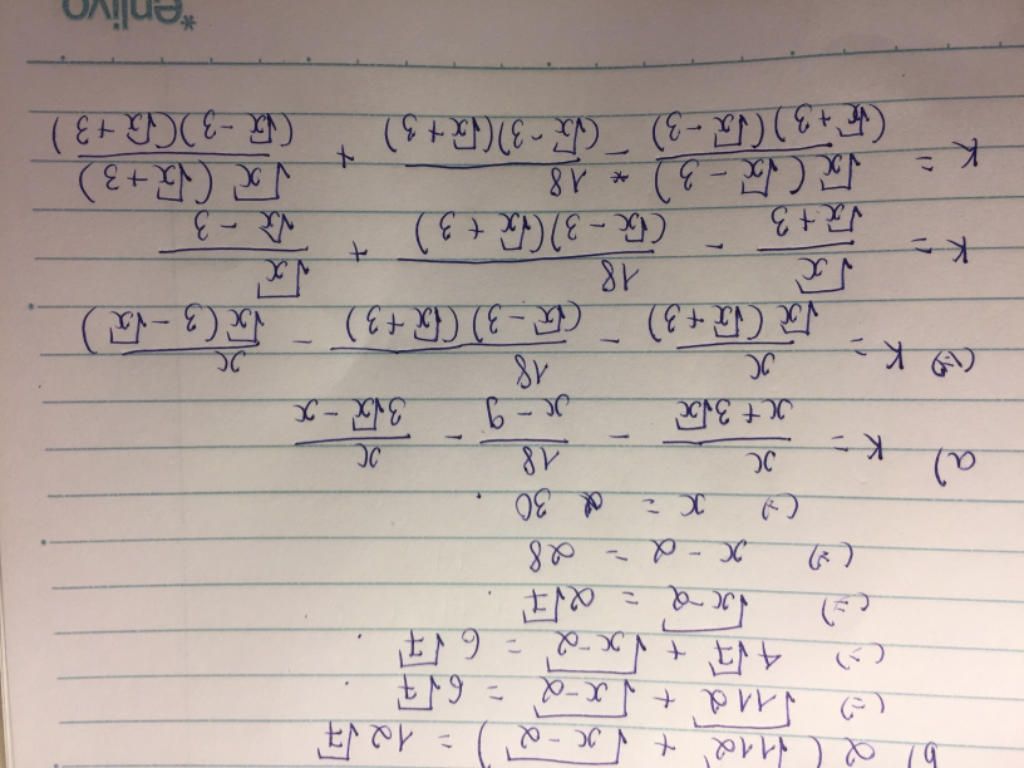 b) 2 (√112 + √x-2) = 12√7
(=) √112 + √x-2 = 6√7.
(=) 4√7 + √x-2 = 6√7.
(=) √x-2 = 2√7.
(=) x - 2 = 28
(=) x = 30.
a) K = x/(x + 3√x) - 18/(x - 9) - x/(3√x - x)
(=) K = x/(√x (√x + 3)) - 18/((√x - 3)(√x + 3)) - x/(√x (3 - √x))
K = √x/(√x + 3) - 18/((√x - 3)(√x + 3)) + √x/(√x - 3)
K = √x (√x - 3)/((√x + 3)(√x - 3)) - 18/((√x - 3)(√x + 3)) + √x (√x + 3)/((√x - 3)(√x + 3))
*enlivo